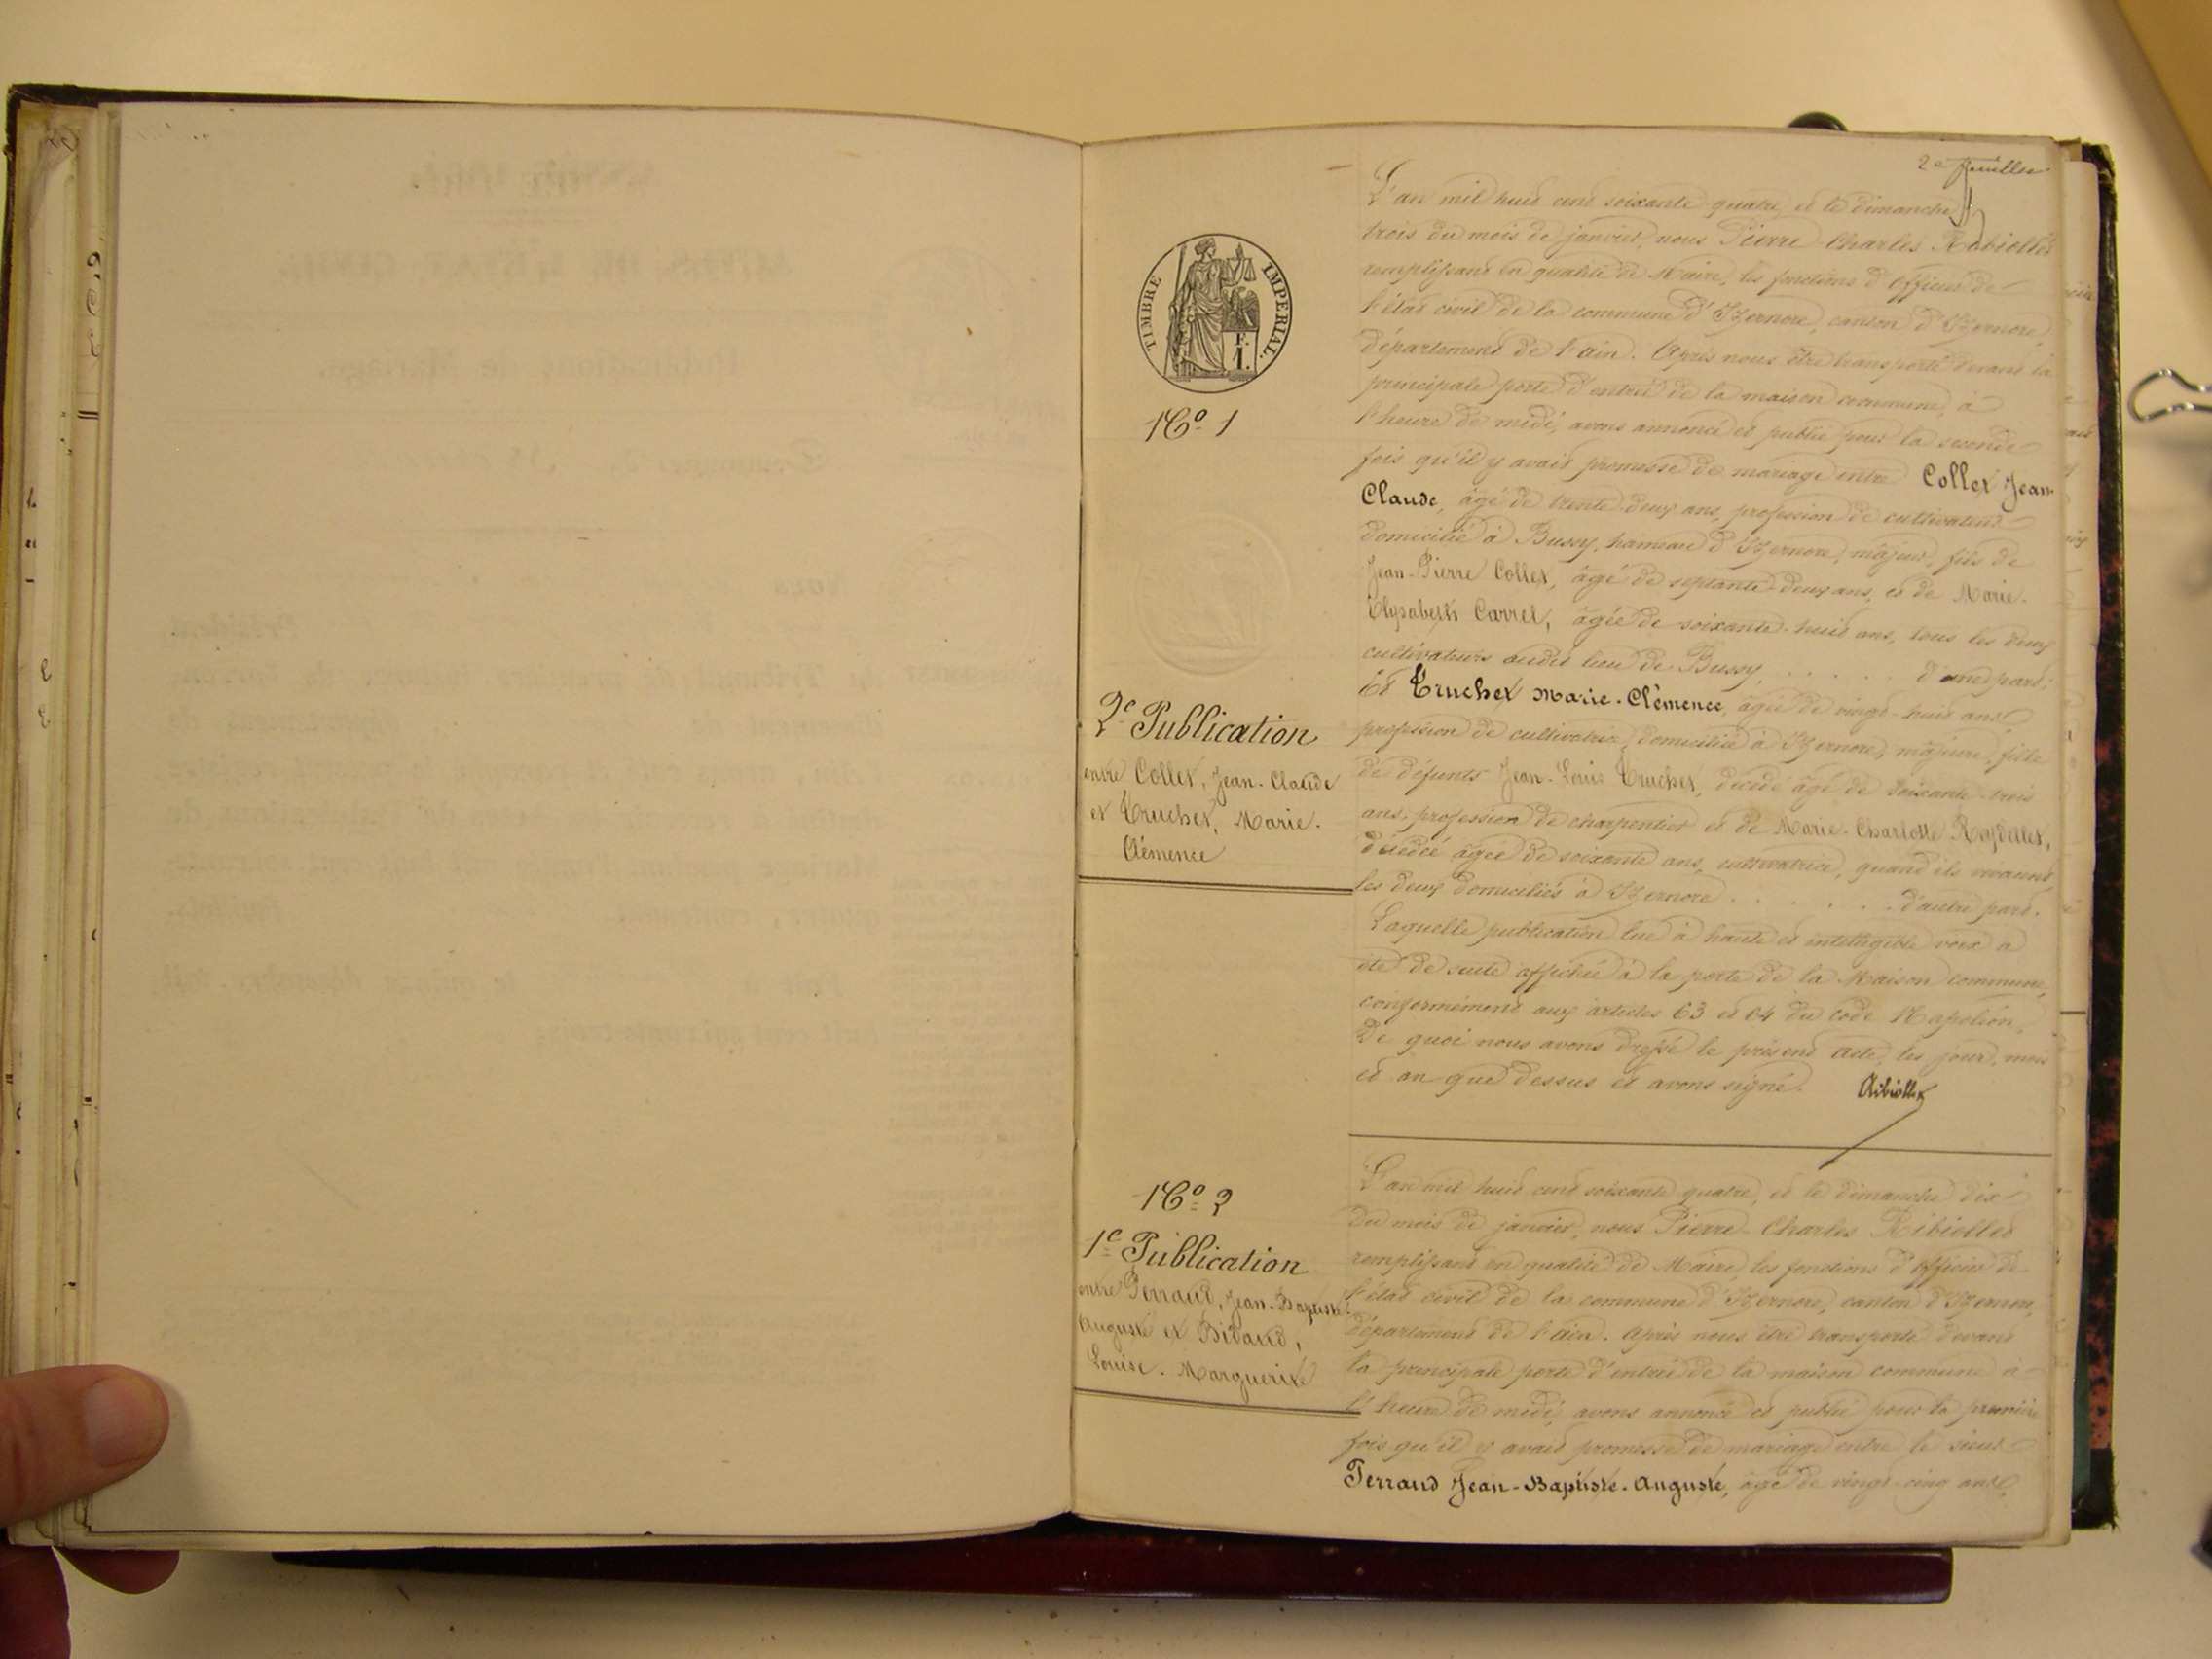 2e feuillet
TIMBRE IMPERIAL.
F.
1.
L'an mil huit cent soixante quatre, et le dimanche
trois du mois de janvier, nous Pierre Charles Ribiollet
remplissant en qualité de Maire, les fonctions d'officier de
l'état civil de la commune d'Izernore, canton d'Izernore,
département de l'ain. Après nous être transporté devant la
principale porte d'entrée de la maison commune, à
l'heure de midi, avons annoncé et publié pour la seconde
fois qu'il y avait promesse de mariage entre Collet Jean-
Claude, âgé de trente-deux ans, profession de cultivateur
domicilié à Bussy, hameau d'Izernore, majeur, fils de
Jean-Pierre Collet, âgé de septante-deux ans, et de Marie-
Elysabeth Carrel, âgée de soixante-huit ans, tous les deux
cultivateurs audit lieu de Bussy, . . . . . d'une part;
Et Truchet Marie-Clémence, âgée de vingt-huit ans,
profession de cultivatrice, domiciliée à Izernore, majeure, fille
de défunts Jean-Louis Truchet, décédé âgé de soixante-trois
ans, profession de charpentier et de Marie-Charlotte Reydellet,
décédée âgée de soixante ans, cultivatrice, quand ils vivaient,
les deux domiciliés à Izernore . . . . . . d'autre part.
Laquelle publication lue à haute et intelligible voix a
été de suite affichée à la porte de la Maison commune,
conformément aux articles 63 et 64 du Code Napoléon,
De quoi nous avons dressé le présent acte, les jour, mois
et an que dessus et avons signé. Ribiollet
No 1
2e Publication
entre Collet, Jean-Claude
et Truchet, Marie-
Clémence
No 2
1e Publication
entre Perraud, Jean-Baptiste-
Auguste et Bidaud,
Louise-Marguerite
L'an mil huit cent soixante quatre, et le dimanche dix
du mois de janvier, nous Pierre-Charles Ribiollet
remplissant en qualité de Maire, les fonctions d'officier de
l'état civil de la commune d'Izernore, canton d'Izernore,
département de l'ain. Après nous être transporté devant
la principale porte d'entrée de la maison commune à
l'heure de midi, avons annoncé et publié pour la première
fois qu'il y avait promesse de mariage entre le sieur
Perraud Jean-Baptiste-Auguste, âgé de vingt-cinq ans,